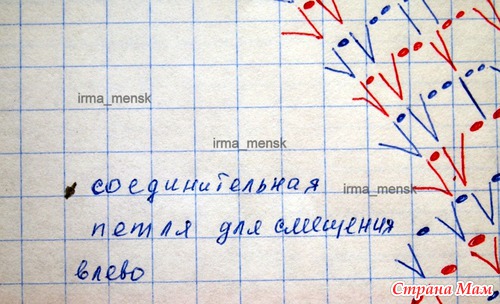 irma_mensk
irma_mensk
соединительная
irma_mensk
петля для смещения
влево
Страна Мам